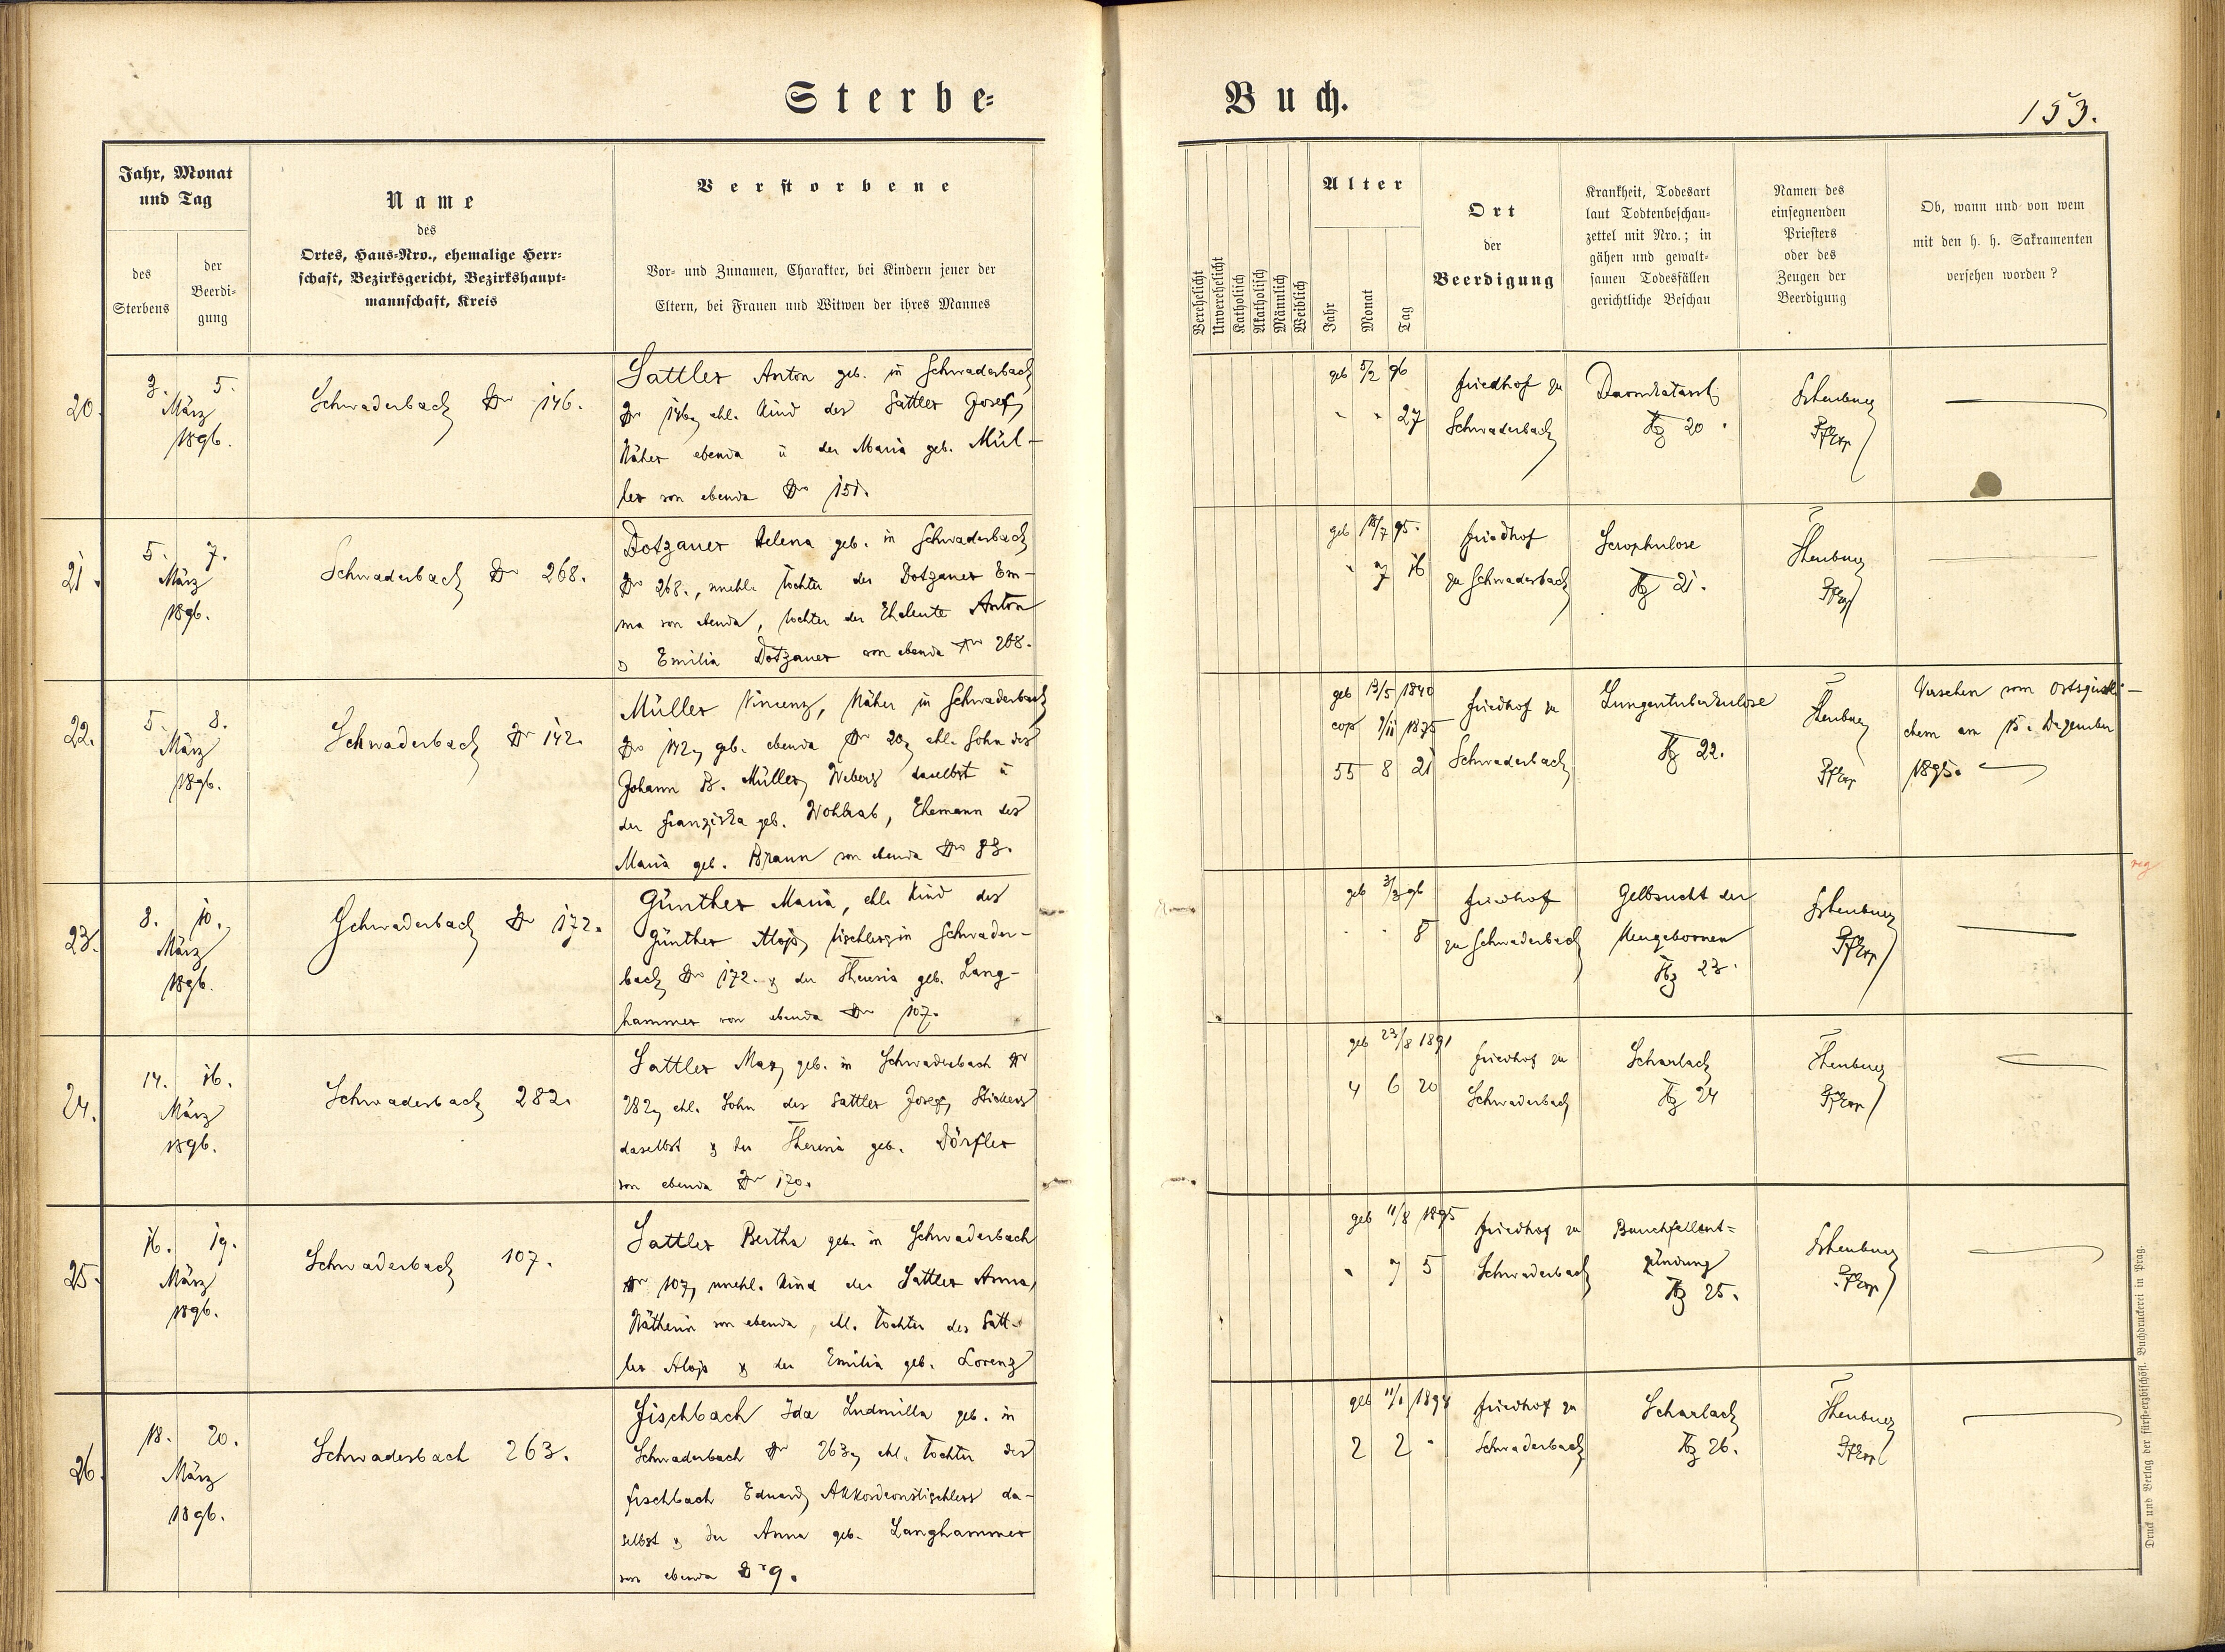 Sterbe-
Buch.
153.
Jahr, Monat
und Tag
des
Sterbens
der
Beerdi-
gung
Name
des
Ortes, Haus-Nro., ehemalige Herr-
schaft, Bezirksgericht, Bezirkshaupt-
mannschaft, Kreis
Verstorbene
Vor- und Zunamen, Charakter, bei Kindern jener der
Eltern, bei Frauen und Witwen der ihres Mannes
Verehelicht
Unverehelicht
Katholisch
Akatholisch
Männlich
Weiblich
Alter
Jahr
Monat
Tag
Ort
der
Beerdigung
Krankheit, Todesart
laut Todtenbeschau-
zettel mit Nro.; in
gähen und gewalt-
samen Todesfällen
gerichtliche Beschau
Namen des
einsegnenden
Priesters
oder des
Zeugen der
Beerdigung
Ob, wann und von wem
mit den h. h. Sakramenten
versehen worden?
20.
3. 5.
März
1896.
Schwaderbach Nr 146.
Sattler Anton geb. in Schwaderbach
Nr 146, ehl. Kind des Sattler Josef,
Näher ebenda u der Maria geb. Mül-
ler von ebenda Nro 151.
geb 5/2 96
" " 27
Friedhof zu
Schwaderbach
Darmkatarrh
Tz 20.
Pfarr
21.
5. 7.
März
1896.
Schwaderbach Nr 268.
Dotzauer Helena geb. in Schwaderbach
Nro 268., unehl. Tochter der Dotzauer Em-
ma von ebenda, Tochter der Eheleute Anton
& Emilia Dotzauer von ebenda Nro 268.
geb 18/7 95.
" 7 16
Friedhof
zu Schwaderbach
Scrophulose
Tz 21.
Pfarr
22.
5. 8.
März
1896.
Schwaderbach Nr 142.
Müller Vincenz, Näher in Schwaderbach
Nro 142, geb. ebenda Nro 20, ehl. Sohn des
Johann B. Müller, Webers daselbst u
der Franziska geb. Wohlrab, Ehemann der
Maria geb. Braun von ebenda Nro 83.
geb 13/5 1840
cop 7/11 1875
55 8 21
Friedhof zu
Schwaderbach
Lungentuberkulose
Tz 22.
Pfarr
Versehen vom Ortsgeistli-
chem am 15. Dezember
1895.
23.
8. 10.
März
1896.
Schwaderbach Nr 172.
Günther Maria, ehl. Kind des
Günther Alois, Tischlers in Schwader-
bach Nro 172. & der Theresia geb. Lang-
hammer von ebenda Nro 107.
geb 3/3 96
" " 8
Friedhof
zu Schwaderbach
Gelbsucht der
Neugebornen
Tz 23.
Pfarr
reg
24.
14. 16.
März
1896.
Schwaderbach 282.
Sattler Max, geb. in Schwaderbach Nr
282, ehl. Sohn des Sattler Josef, Stickers
daselbst & der Theresia geb. Dörfler
von ebenda Nr 170.
geb 23/8 1891
4 6 20
Friedhof zu
Schwaderbach
Scharlach
Tz 24
Pfarr
25.
16. 19.
März
1896.
Schwaderbach 107.
Sattler Bertha geb. in Schwaderbach
Nr 107, unehl. Kind der Sattler Anna,
Nätherin von ebenda, ehl. Tochter des Satt-
ler Alois & der Emilia geb. Lorenz
geb 11/8 1895
" 7 5
Friedhof zu
Schwaderbach
Bauchfellent=
zündung
Tz 25.
Pfarr
26.
18. 20.
März
1896.
Schwaderbach 263.
Fischbach Ida Ludmilla geb. in
Schwaderbach Nr 263, ehl. Tochter des
Fischbach Eduard, Akkordeontischlers da-
selbst & der Anna geb. Langhammer
von ebenda Nr 9.
geb 11/1 1894
2 2 "
Friedhof zu
Schwaderbach
Scharlach
Tz 26.
Pfarr
Druck und Verlag der fürst-erzbischöfl. Buchdruckerei in Prag.